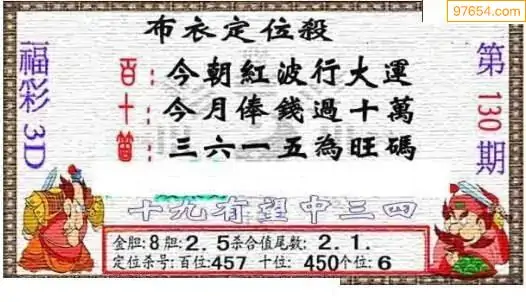 97654.com
布衣定位殺
福彩 3D
第 130 期
百：今朝紅波行大運
十：今月俸錢過十萬
三六一五為旺碼
十九有望中三四
金胆:8胆:2.5杀合值尾数: 2.1.
定位杀号:百位:457 十位: 450个位:6